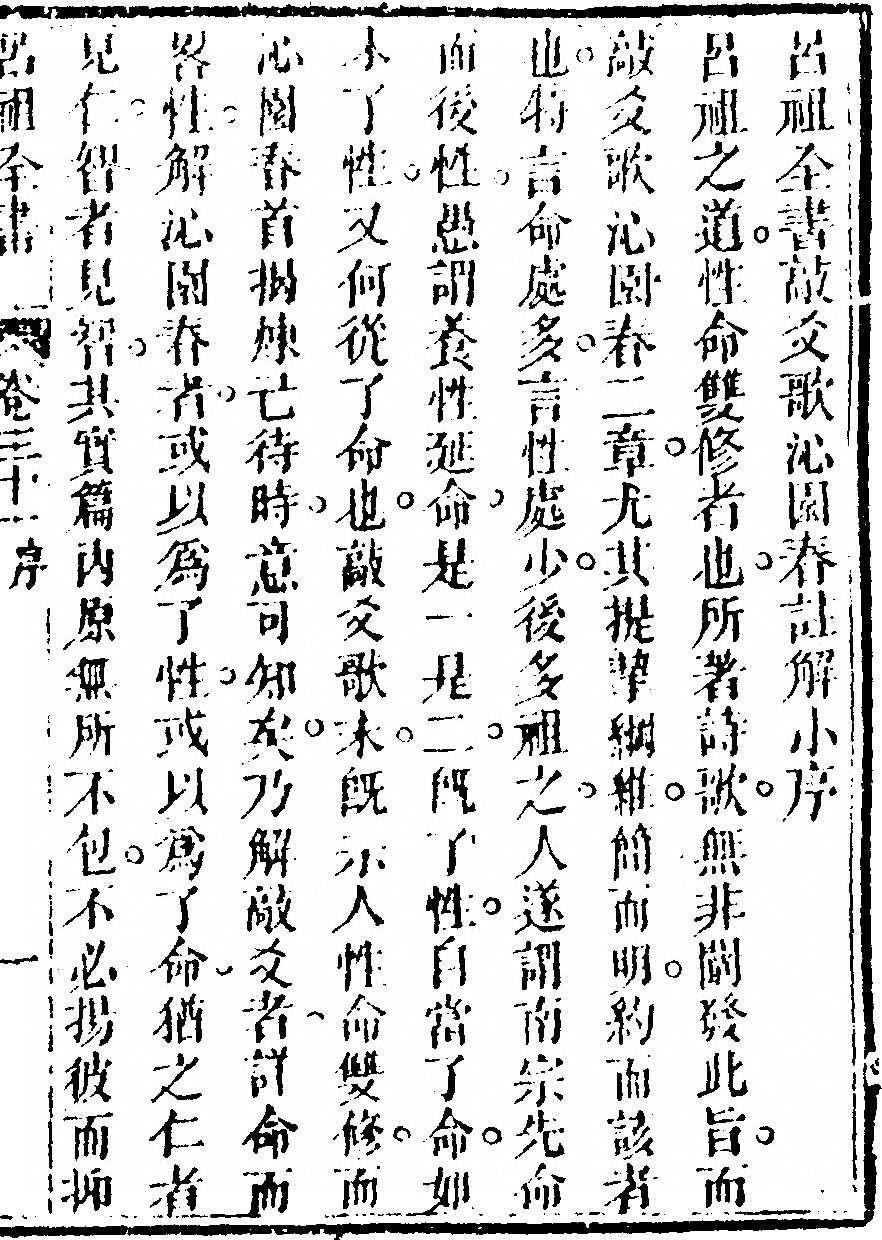 呂祖全書敲爻歌沁園春註解小序
呂祖之道性命雙修者也所著詩歌無非闡發此旨而
敲爻歌沁園春二章尤其提挈綱維簡而明約而該者
也特言命處多言性處少後多祖之人遂謂南宗先命
而後性愚謂養性延命是一是二旣了性自當了命如
不了性又何從了命也敲爻歌末旣示人性命雙修而
沁園春首揭煉己待時意可知矣乃解敲爻者詳命而
畧性解沁園春者或以爲了性或以爲了命猶之仁者
見仁智者見智其實篇內原無所不包不必揚彼而抑
呂祖全書 卷三十一 序 一